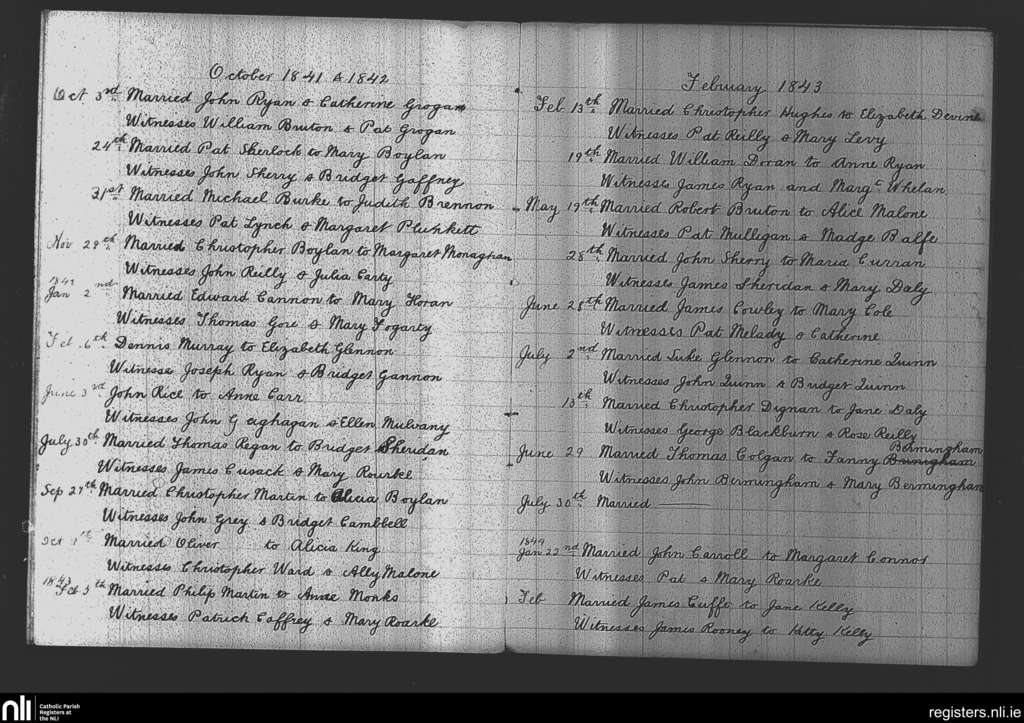 October 1841 & 1842
Oct 3rd Married John Ryan & Catherine Grogan
Witnesses William Bruton & Pat Grogan
24th Married Pat Sherlock to Mary Boylan
Witnesses John Sherry & Bridget Gaffney
31st Married Michael Burke to Judith Brennon
Witnesses Pat Lynch & Margaret Plunkett
Nov 29th Married Christopher Boylan to Margaret Monaghan
Witnesses John Reilly & Julia Carty
1842
Jan 2nd Married Edward Cannon to Mary Horan
Witnesses Thomas Gore & Mary Fogarty
Feb 6th Dennis Murray to Elizabeth Glennon
Witnesse Joseph Ryan & Bridget Gannon
June 3rd John Rice to Anne Carr
Witnesses John G aghagan & Ellen Mulvany
July 30th Married Thomas Regan to Bridget Sheridan
Witnesses James Cusack & Mary Rourke
Sep 27th Married Christopher Martin to Alicia Boylan
Witnesses John Grey & Bridget Cambbell
Oct Married Oliver to Alicia King
Witnesses Christopher Ward & Ally Malone
1843
Feb 5th Married Philip Martin to Anne Monks
Witnesses Patrick Caffrey & Mary Roarke
February 1843
Feb 13th Married Christopher Hughes to Elizabeth Devine
Witnesses Pat Reilly & Mary Levy
19th Married William Doran to Anne Ryan
Witnesses James Ryan and Margt Whelan
May 19th Married Robert Bruton to Alice Malone
Witnesses Pat Mulligan & Madge Balfe
28th Married John Sherry to Maria Curran
Witnesses James Sheridan & Mary Daly
June 28th Married James Cowley to Mary Cole
Witnesses Pat Melady & Catherine
July 2nd Married Luke Glennon to Catherine Quinn
Witnesses John Quinn & Bridget Quinn
13th Married Christopher Dignan to Jane Daly
Witnesses George Blackburn & Rose Reilly
Bermingham
June 29 Married Thomas Colgan to Fanny Brunigham
Witnesses John Birmingham & Mary Bermingham
July 30th Married
1844
Jan 22nd Married John Carroll to Margaret Connor
Witnesses Pat & Mary Roarke
Feb Married James Cuffe to Jane Kelly
Witnesses James Rooney to Kitty Kelly
nli Catholic Parish
Registers at
the NLI
registers.nli.ie